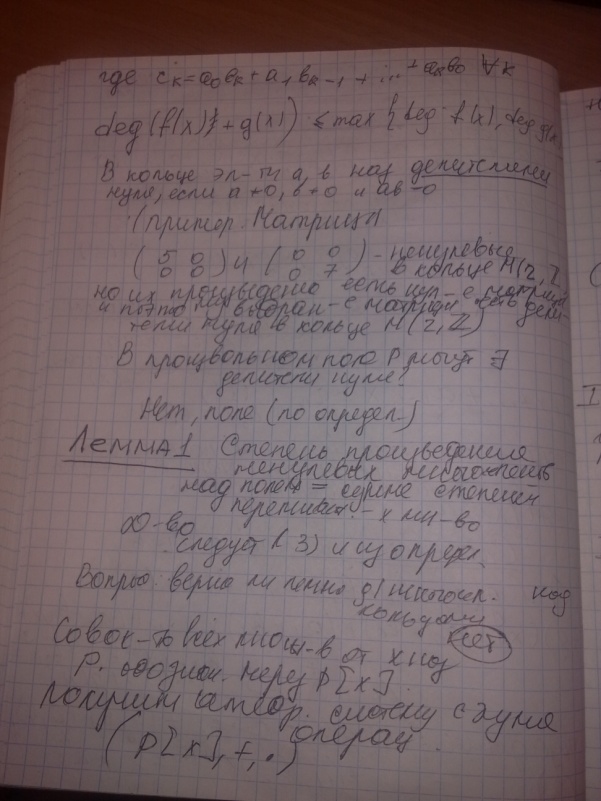 где c_k = a_0 b_k + a_1 b_{k-1} + ... + a_k b_0 ∀ k
deg (f(x)} + g(x)) ≤ max { deg f(x), deg g(x
В кольце эл-ты a, b наз делителями
нуля, если a ≠ 0, b ≠ 0 и ab = 0
(пример. Матрицы
( 5 0 ) и ( 0 0 ) - ненулевые
( 0 0 ) ( 0 7 ) в кольце M(2, Z
но их произведение есть нул-е матрица
и поэтому выбран-е матрицы есть дели-
тели нуля в кольце M(2, Z)
В произвольном поле P могут ∃
делители нуля?
Нет, поле (по определ.)
Лемма 1 Степень произведения
ненулевых многочленов
над полем = сумме степеней
перемножа-х мн-во
До-во
следует (3) и из определ.
Вопрос: верна ли лемма д/ многочл. над
кольцами
нет
Совок-ть всех многоч-в от x над
P. обознач. через P[x].
Получим алгебр. систему с двумя
операц.
(P[x], +, ·)